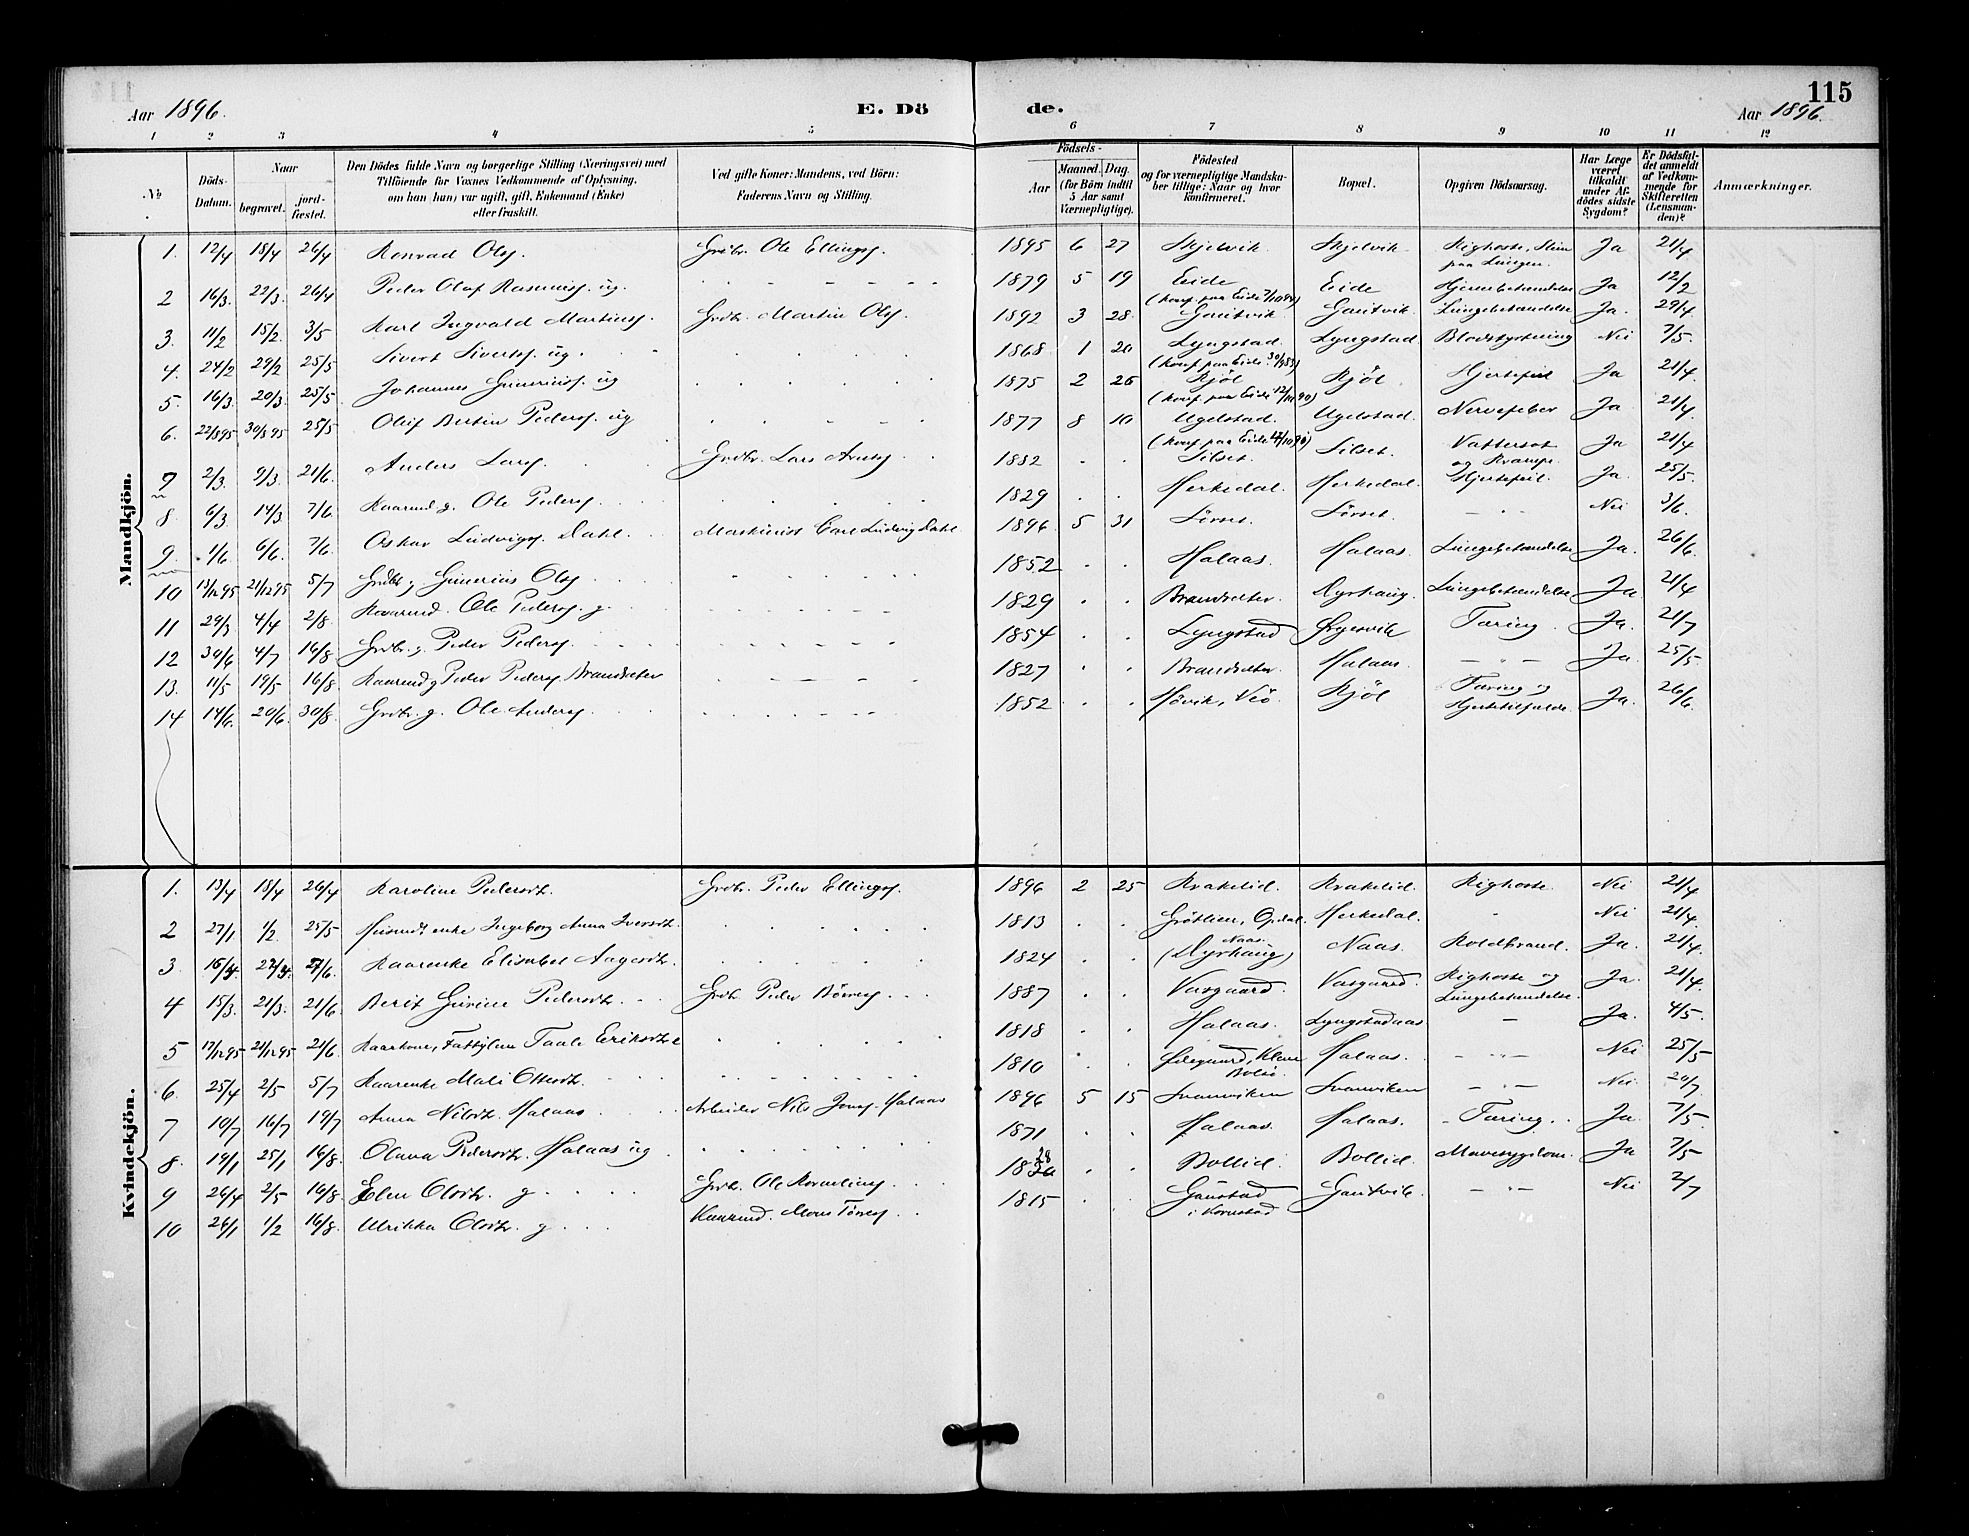 115
Aar 1896. E. Dö de. Aar 1896.
1 2 3 4 5 6 7 8 9 10 11 12
No. Döds-Datum. Naar begravet. jord-fæstet. Den Dödes fulde Navn og borgerlige Stilling (Næringsvei) med Tilföiende for Voxnes Vedkommende af Oplysning, om han (hun) var ugift, gift, Enkemand (Enke) eller fraskilt. Ved gifte Koner: Mandens, ved Börn: Faderens Navn og Stilling. Födsels- Aar Maaned. Dag. (for Börn indtil 5 Aar samt Værnepligtige). Födested og for værnepligtige Mandskaber tillige: Naar og hvor konfirmeret. Bopæl. Opgiven Dödsaarsag. Har Læge været tilkaldt under Afdödes sidste Sygdom? Er Dödsfaldet anmeldt af Vedkommende for Skifteretten (Lensmanden)? Anmærkninger.
Mandkjön.
1. 12/4 18/4 26/4 Konrad Olsf. Grdbr. Ole Ellingsf. 1895 6 27 Skjelvik. Skjelvik Kighoste, Slim paa Lungen. Ja 21/4
2 16/3. 22/3. 26/4 Peder Olaf Rasmusf. ug. 1879 5 19 Eide Eide Hjernebetændelse Ja 12/2
3. 11/2 15/2. 3/5 Karl Ingvald Martinsf. Grdbr. Martin Olsf. 1892 3 28. Gautvik Gautvik. Lungebetændelse Ja. 29/4
4. 24/2 29/2 25/5 Sivert Sivertsf. ug. 1868 1 20 Lyngstad. Lyngstad Blodstyrtning Nei 7/5.
5. 16/3. 20/3. 25/5 Johannes Gunnerusf. ug 1875 2 26 Kjöl Kjöl Hjertefeil Ja 21/4.
6. 22/8 95 30/8 95 25/5 Oluf Bertin Pedersf. ug 1877 8 10 Ugelstad. Ugelstad. Nervefeber Ja. 21/4
7 2/3. 9/3. 21/6. Anders Larsf. Grdbr. Lars Arntsf. 1882 Silset. Silset. Vattersot og Krampe. Ja 21/4
8. 6/3 14/3 7/6. Kaarmd g. Ole Pedersf. 1829 Herkedal. Herkedal. Hjertefeil. Ja. 25/5.
9. 1/6 6/6. 7/6. Oskar Ludvigsf. Dahl. Maskinist Carl Ludvig Dahl 1896 5 31 Sörset. Sörset. Nei 3/6.
10 13/12 95 21/12 95 5/7 Grdbr g. Gunerius Olsf 1852 Halaas. Halaas. Lungebetændelse Ja. 26/6.
11 29/3 4/4 2/8. Kaarmd. Ole Pedersf. g. 1829 Brandsæter. Dyrhaug. Lungebetændelse Ja 21/4
12 30/6 4/7 16/8 Grdbr. g. Peder Pedersf. 1854 Lyngstad Öyesvik Tæring Ja. 21/7
13. 11/5 19/5 16/8. Kaarmd g Peder Pedersf Brandsæter 1827 Brandsæter. Halaas. Ja. 25/5
14 14/6. 20/6. 30/8. Grdbr. g. Ole Andersf. 1852 Hövik, Veö. Kjöl Tæring og Hjertetilfælde. Ja. 26/6.
Kvindekjön.
1. 13/4 18/4 26/4 Karoline Pedersdtr. Grdbr. Peder Ellingsf. 1896 2 25 Krakelid. Krakelid. Kighoste. Nei 21/4
2 27/1 1/2. 25/5 Husmdsenke Ingeborg Anna Iversdtr. 1813 Gröttien, Opdal. Herkedal. Nei 21/4.
3. Kaarenke Elisabet Aagesdtr. 1824 Naas. (Dyrhaug) Naas. Koldbrand. Ja. 21/4
4 15/3. 21/3. 21/6. Berit Gurine Pedersdtr. Grdbr. Peder 1887 Vasgaard. Vasgaard. Kighoste og Lungebetændelse. Ja. 21/4.
5 17/12 95 21/12 95 21/6. Kaarkone, Fattiglem Eriksdtr. 1818 Halaas. Lyngstadaas. Ja. 4/5.
6. 25/4 2/5 5/7 Kaarenke Mali Ottersdtr. 1810 Halaas. Nei 25/5
7 10/7 16/7 19/7 Anna Nilsdtr. Halaas Arbeider Nils Jonsf. Halaas 1896 5 15 Svanviken Svanviken Nei 20/7.
8. 19/1 25/1 16/8. Olava Pedersdtr. Halaas ug 1871 Halaas. Halaas. Tæring. Ja. 7/5.
9 26/4 2/5 16/8 Elen Olsdtr. g Grdbr. Ole 1828 Bollid. Bollid. Mavesygdom. Ja 7/5
10 26/1 1/2 16/8. Ulrikka Olsdtr. g Kaarmd. Mons 1815 Gaustad i Kornstad Gautvik. Nei 2/7